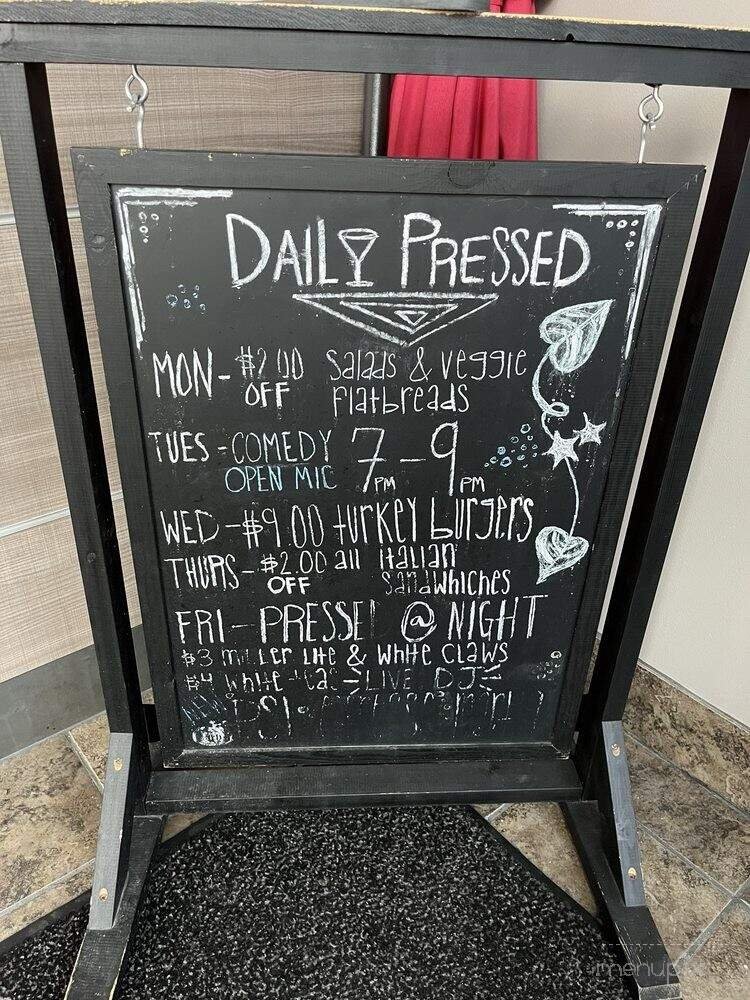 DAILY PRESSED
MON - $2.00 OFF Salads & veggie flatbreads
TUES - COMEDY OPEN MIC 7PM - 9PM
WED - $9.00 turkey burgers
THURS - $2.00 OFF all italian sandwhiches
FRI - PRESSED @ NIGHT
$3 miller lite & white claws
$4 white LIVE DJ